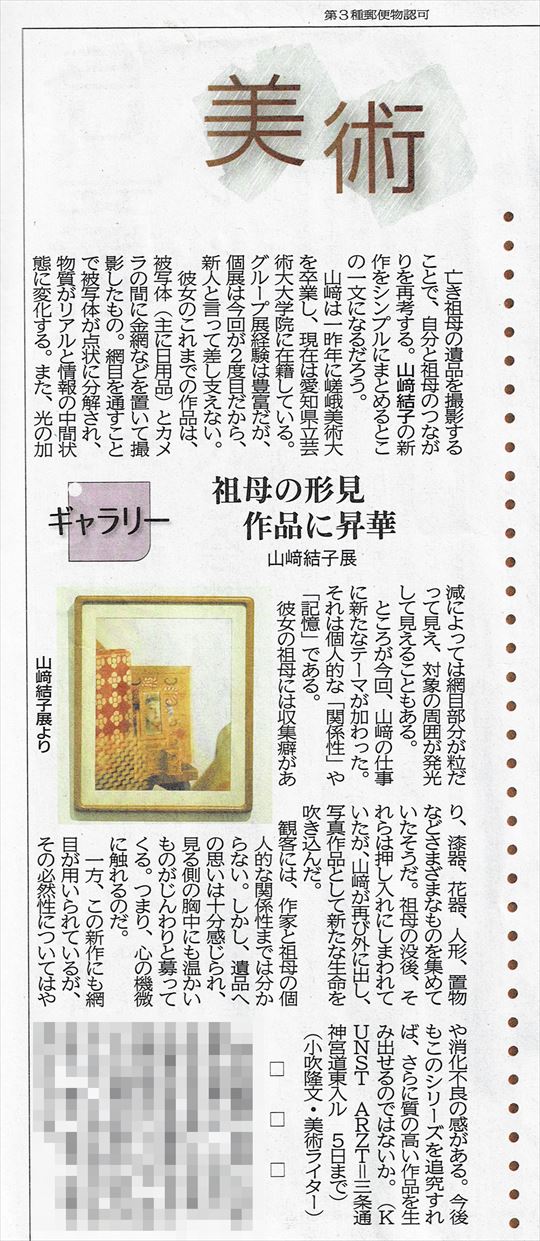 第3種郵便物認可
美術
亡き祖母の遺品を撮影する
ことで、自分と祖母のつなが
りを再考する。山﨑結子の新
作をシンプルにまとめるとこ
の一文になるだろう。
山﨑は一昨年に嵯峨美術大
を卒業し、現在は愛知県立芸
術大大学院に在籍している。
グループ展経験は豊富だが、
個展は今回が2度目だから、
新人と言って差し支えない。
彼女のこれまでの作品は、
被写体（主に日用品）とカメ
ラの間に金網などを置いて撮
影したもの。網目を通すこと
で被写体が点状に分解され、
物質がリアルと情報の中間状
態に変化する。また、光の加
ギャラリー
祖母の形見
作品に昇華
山﨑結子展
減によっては網目部分が粒だ
って見え、対象の周囲が発光
して見えることもある。
ところが今回、山﨑の仕事
に新たなテーマが加わった。
それは個人的な「関係性」や
「記憶」である。
彼女の祖母には収集癖があ
山﨑結子展より
り、漆器、花器、人形、置物
などさまざまなものを集めて
いたそうだ。祖母の没後、そ
れらは押し入れにしまわれて
いたが、山﨑が再び外に出し、
写真作品として新たな生命を
吹き込んだ。
観客には、作家と祖母の個
人的な関係性までは分か
らない。しかし、遺品へ
の思いは十分感じられ、
見る側の胸中にも温かい
ものがじんわりと募って
くる。つまり、心の機微
に触れるのだ。
一方、この新作にも網
目が用いられているが、
その必然性についてはや
や消化不良の感がある。今後
もこのシリーズを追究すれ
ば、さらに質の高い作品を生
み出せるのではないか。（K
UNST ARZT＝三条通
神宮道東入ル 5日まで）
（小吹隆文・美術ライター）
□ □ □